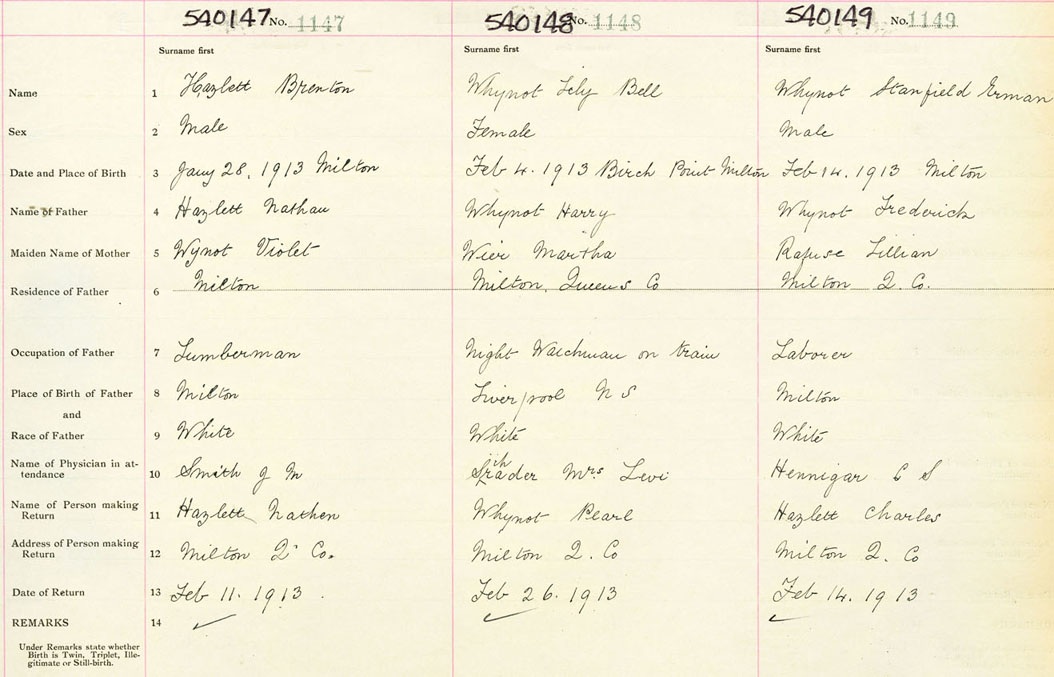 540147 No. 1147 540148 No. 1148 540149 No. 1149
Surname first Surname first Surname first
Name 1 Hazlett Brenton Whynot Lily Bell Whynot Stanfield Erman
Sex 2 Male Female Male
Date and Place of Birth 3 Jany 28, 1913 Milton Feb 4. 1913 Birch Point Milton Feb 14. 1913 Milton
Name of Father 4 Hazlett Nathan Whynot Harry Whynot Frederick
Maiden Name of Mother 5 Wynot Violet Wier Martha Rafuse Lillian
Residence of Father 6 Milton Milton, Queens Co Milton Q. Co.
Occupation of Father 7 Lumberman Night Watchman on train Laborer
Place of Birth of Father 8 Milton Liverpool N S Milton
and
Race of Father 9 White White White
Name of Physician in at-
tendance 10 Smith J M Mrs. Levi Hennigar C S
Name of Person making
Return 11 Hazlett Nathen Whynot Pearl Hazlett Charles
Address of Person making
Return 12 Milton Q. Co. Milton Q. Co Milton Q. Co
Date of Return 13 Feb 11. 1913. Feb 26. 1913 Feb 14. 1913
REMARKS 14
Under Remarks state whether
Birth is Twin, Triplet, Ille-
gitimate or Still-birth.